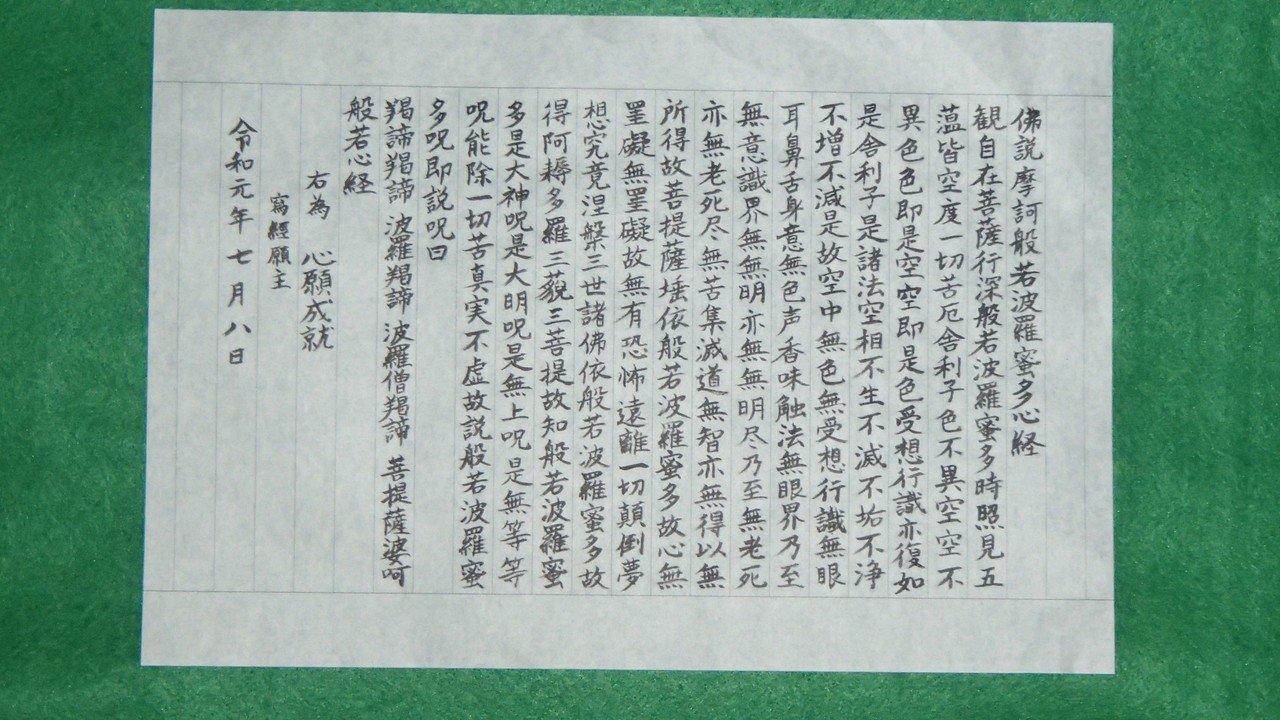 佛説摩訶般若波羅蜜多心経
観自在菩薩行深般若波羅蜜多時照見五
蕰皆空度一切苦厄舎利子色不異空空不
異色色即是空空即是色受想行識亦復如
是舎利子是諸法空相不生不滅不垢不浄
不増不減是故空中無色無受想行識無眼
耳鼻舌身意無色声香味触法無眼界乃至
無意識界無無明亦無無明尽乃至無老死
亦無老死尽無苦集滅道無智亦無得以無
所得故菩提薩埵依般若波羅蜜多故心無
罣礙無罣礙故無有恐怖遠離一切顛倒夢
想究竟涅槃三世諸佛依般若波羅蜜多故
得阿耨多羅三藐三菩提故知般若波羅蜜
多是大神呪是大明呪是無上呪是無等等
呪能除一切苦真実不虚故説般若波羅蜜
多呪即説呪曰
羯諦羯諦 波羅羯諦 波羅僧羯諦 菩提薩婆呵
般若心経
右為 心願成就
寫経願主
令和元年七月八日